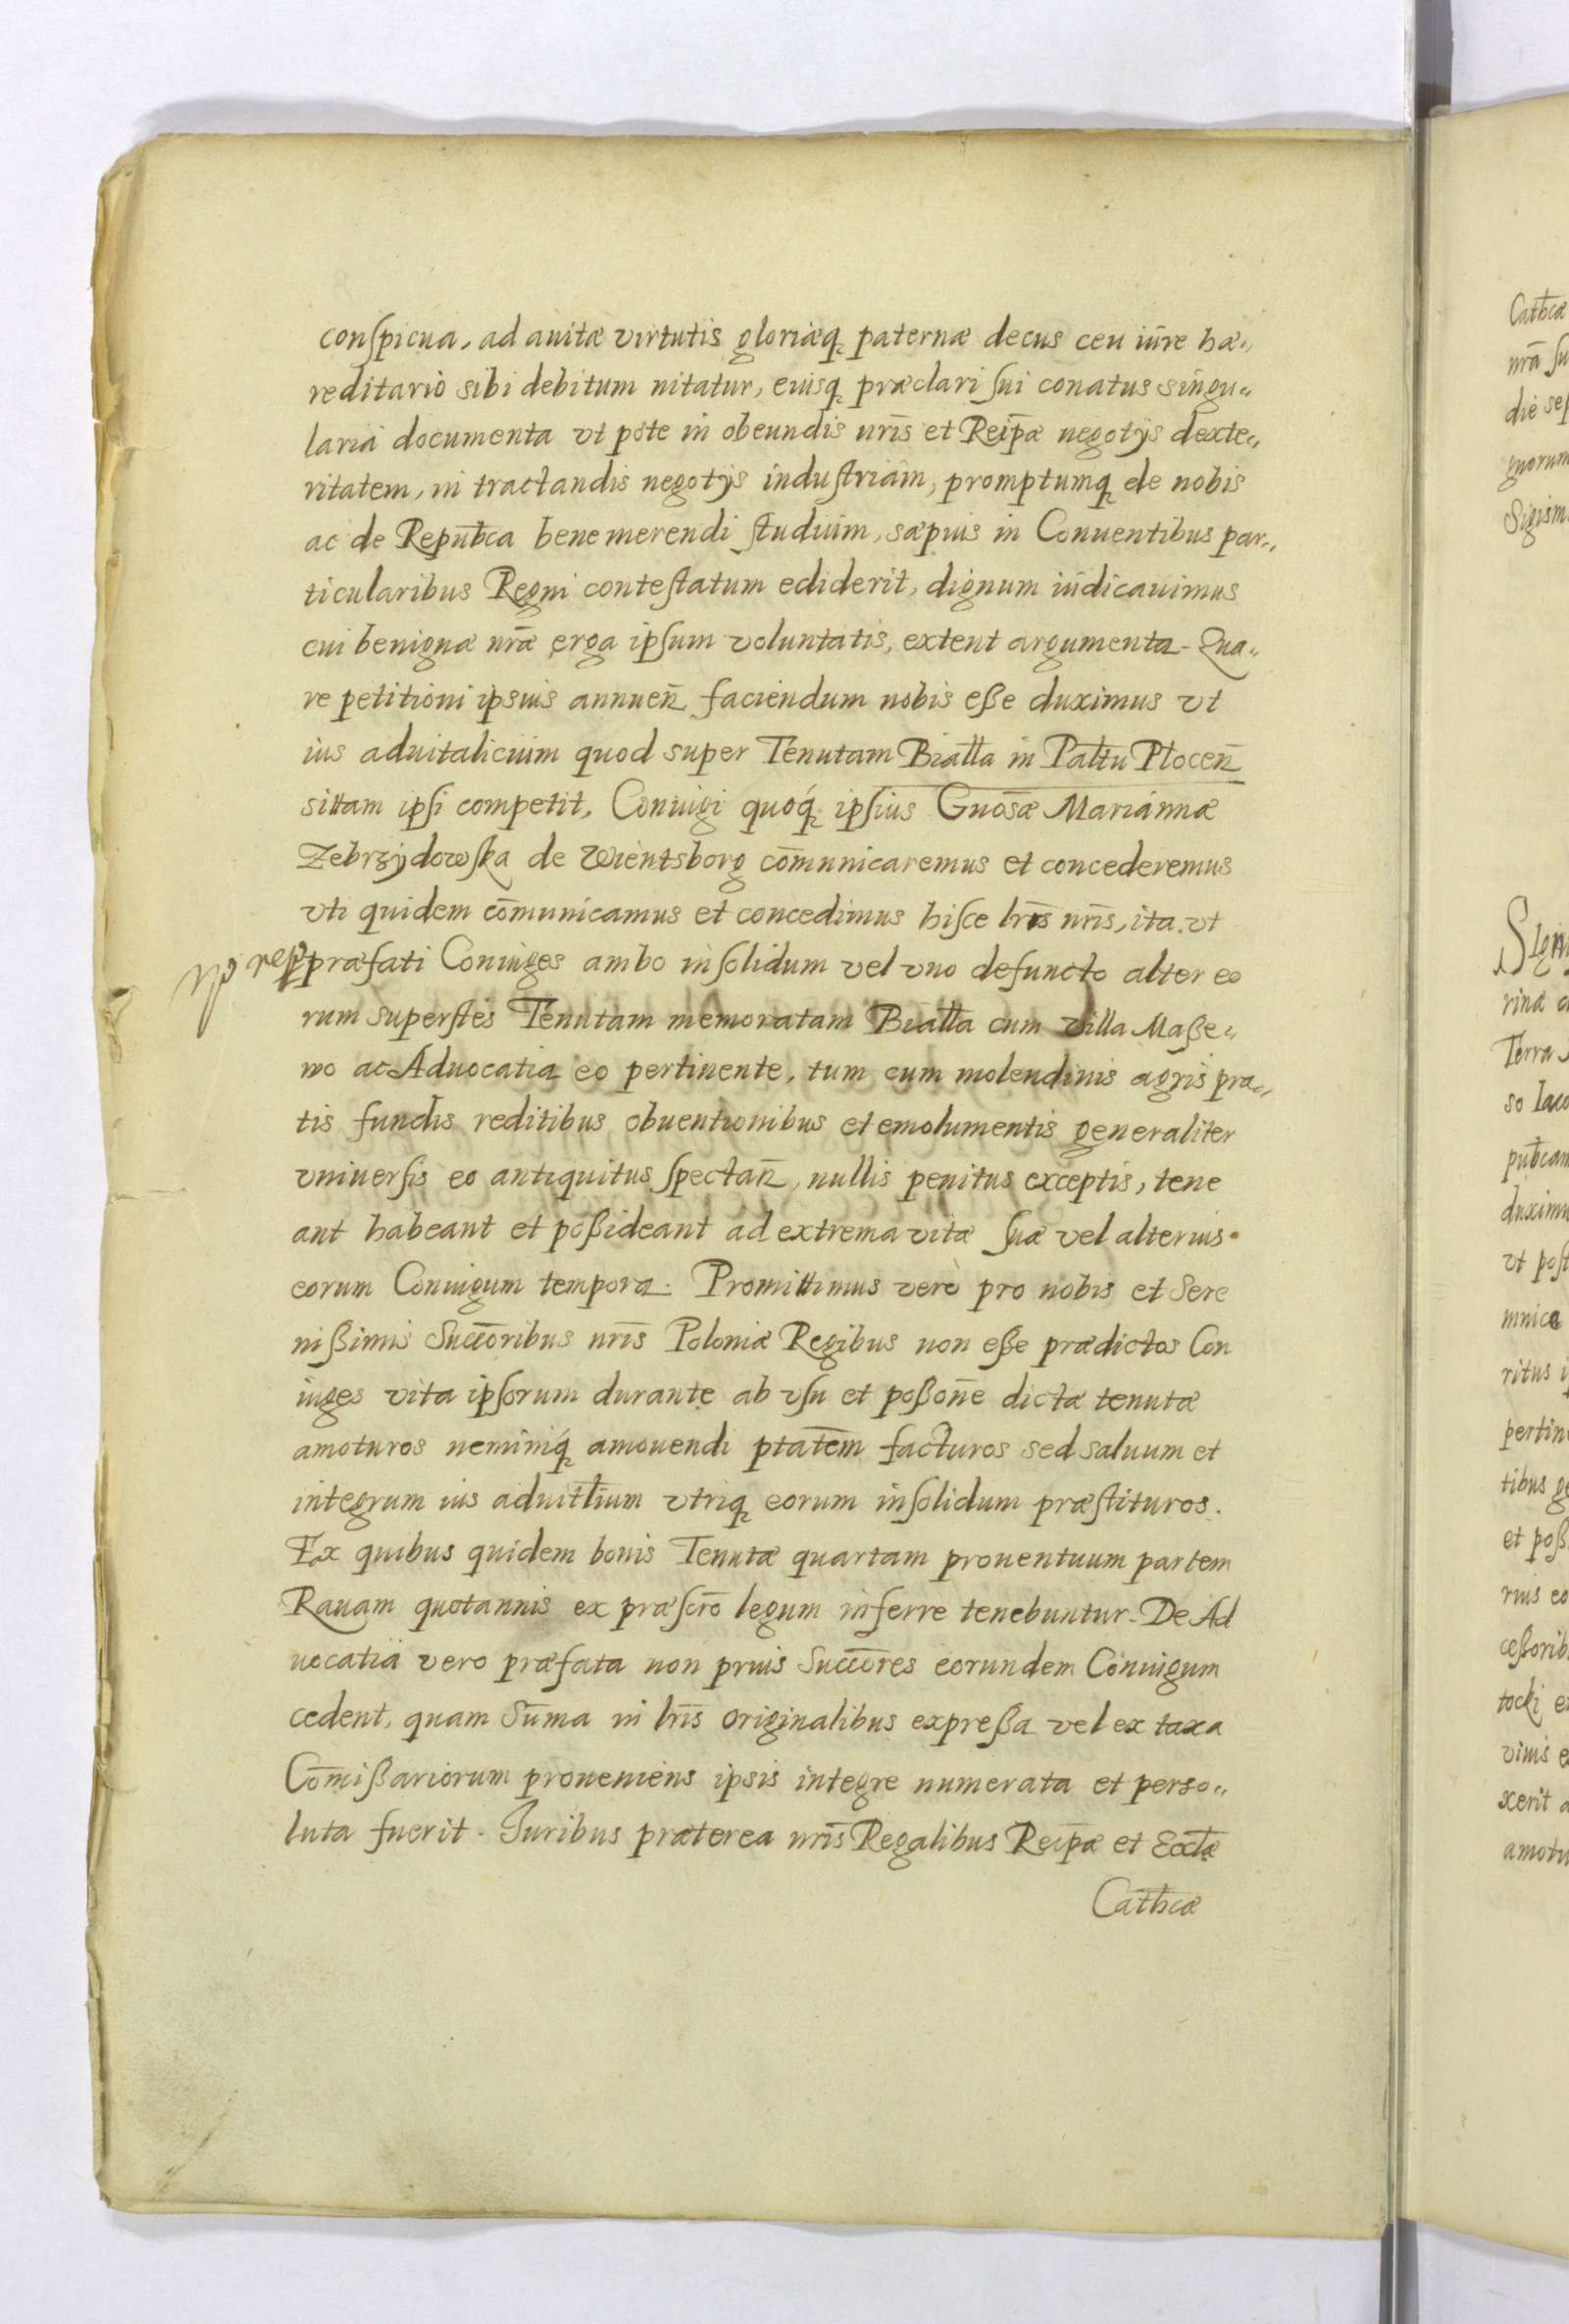 conſpicua, ad auitæ virtutis gloriæq, paternæ decus ceu iūre hæ„
reditario sibi debitum nitatur, eiusq, præclari ſui conatus singu„
laria documenta vt pote in obeundis nr̄is et Reip̄æ negotijs dexte„
ritatem, in tractandis negotijs induſtriam, promptumq, de nobis
ac de Repub̄ca bene merendi ſtudium, sæpius in Conuentibus par„
ticularibus Regni conteſtatum ediderit, dignum iudicauimus
cui benignæ nr̄æ erga ipſum voluntatis, extent argumenta. Qua„
re petitioni ipsius annuen̄ faciendum nobis eße duximus vt
ius aduitalicium quod super Tenutam Bialla in Pal̄tu Plocen̄
sittam ipſi competit, Coniugi quoq, ipſius Gnos̄æ Mariannæ
Zebrzÿdowſka de Wientsborg com̄unicaremus et concederemus
vti quidem com̄unicamus et concedimus hiſce lr̄is nr̄is, ita vt
præfati Coniuges ambo inſolidum vel vno defuncto alter eo
rum superſtes Tenutam memoratam Bialla cum villa Maße„
wo ac Aduocatia eo pertinente, tum cum molendinis agris pra„
tis fundis reditibus obuentionibus et emolumentis generaliter
vniuerſis eo antiquitus ſpectan̄, nullis penitus exceptis, tene
ant habeant et poßideant ad extrema vitæ ſuæ vel alterius
eorum Coniugum tempora. Promittimus verò pro nobis et Sere
nißimis Succōribus nr̄is Poloniæ Regibus non eße prædictos Con
iuges vita ipſorum durante ab vſu et poßon̄e dictæ tenutæ
amoturos neminiq, amouendi ptatem̄ facturos sed saluum et
integrum ius aduitl̄ium vtriq, eorum inſolidum præſtituros.
Ex quibus quidem bonis Tenutæ quartam prouentuum partem
Rauam quotannis ex præſcr̄o legum inferre tenebuntur. De Ad
uocatia vero præfata non prius Succōres eorundem Coniugum
cedent, quam Sum̄a in lr̄is originalibus expreßa vel ex taxa
Com̄ißariorum proueniens ipsis integre numerata et perso„
luta fuerit. Juribus præterea nr̄is Regalibus Reip̄æ et Eccl̄æ
Cath̄cæ